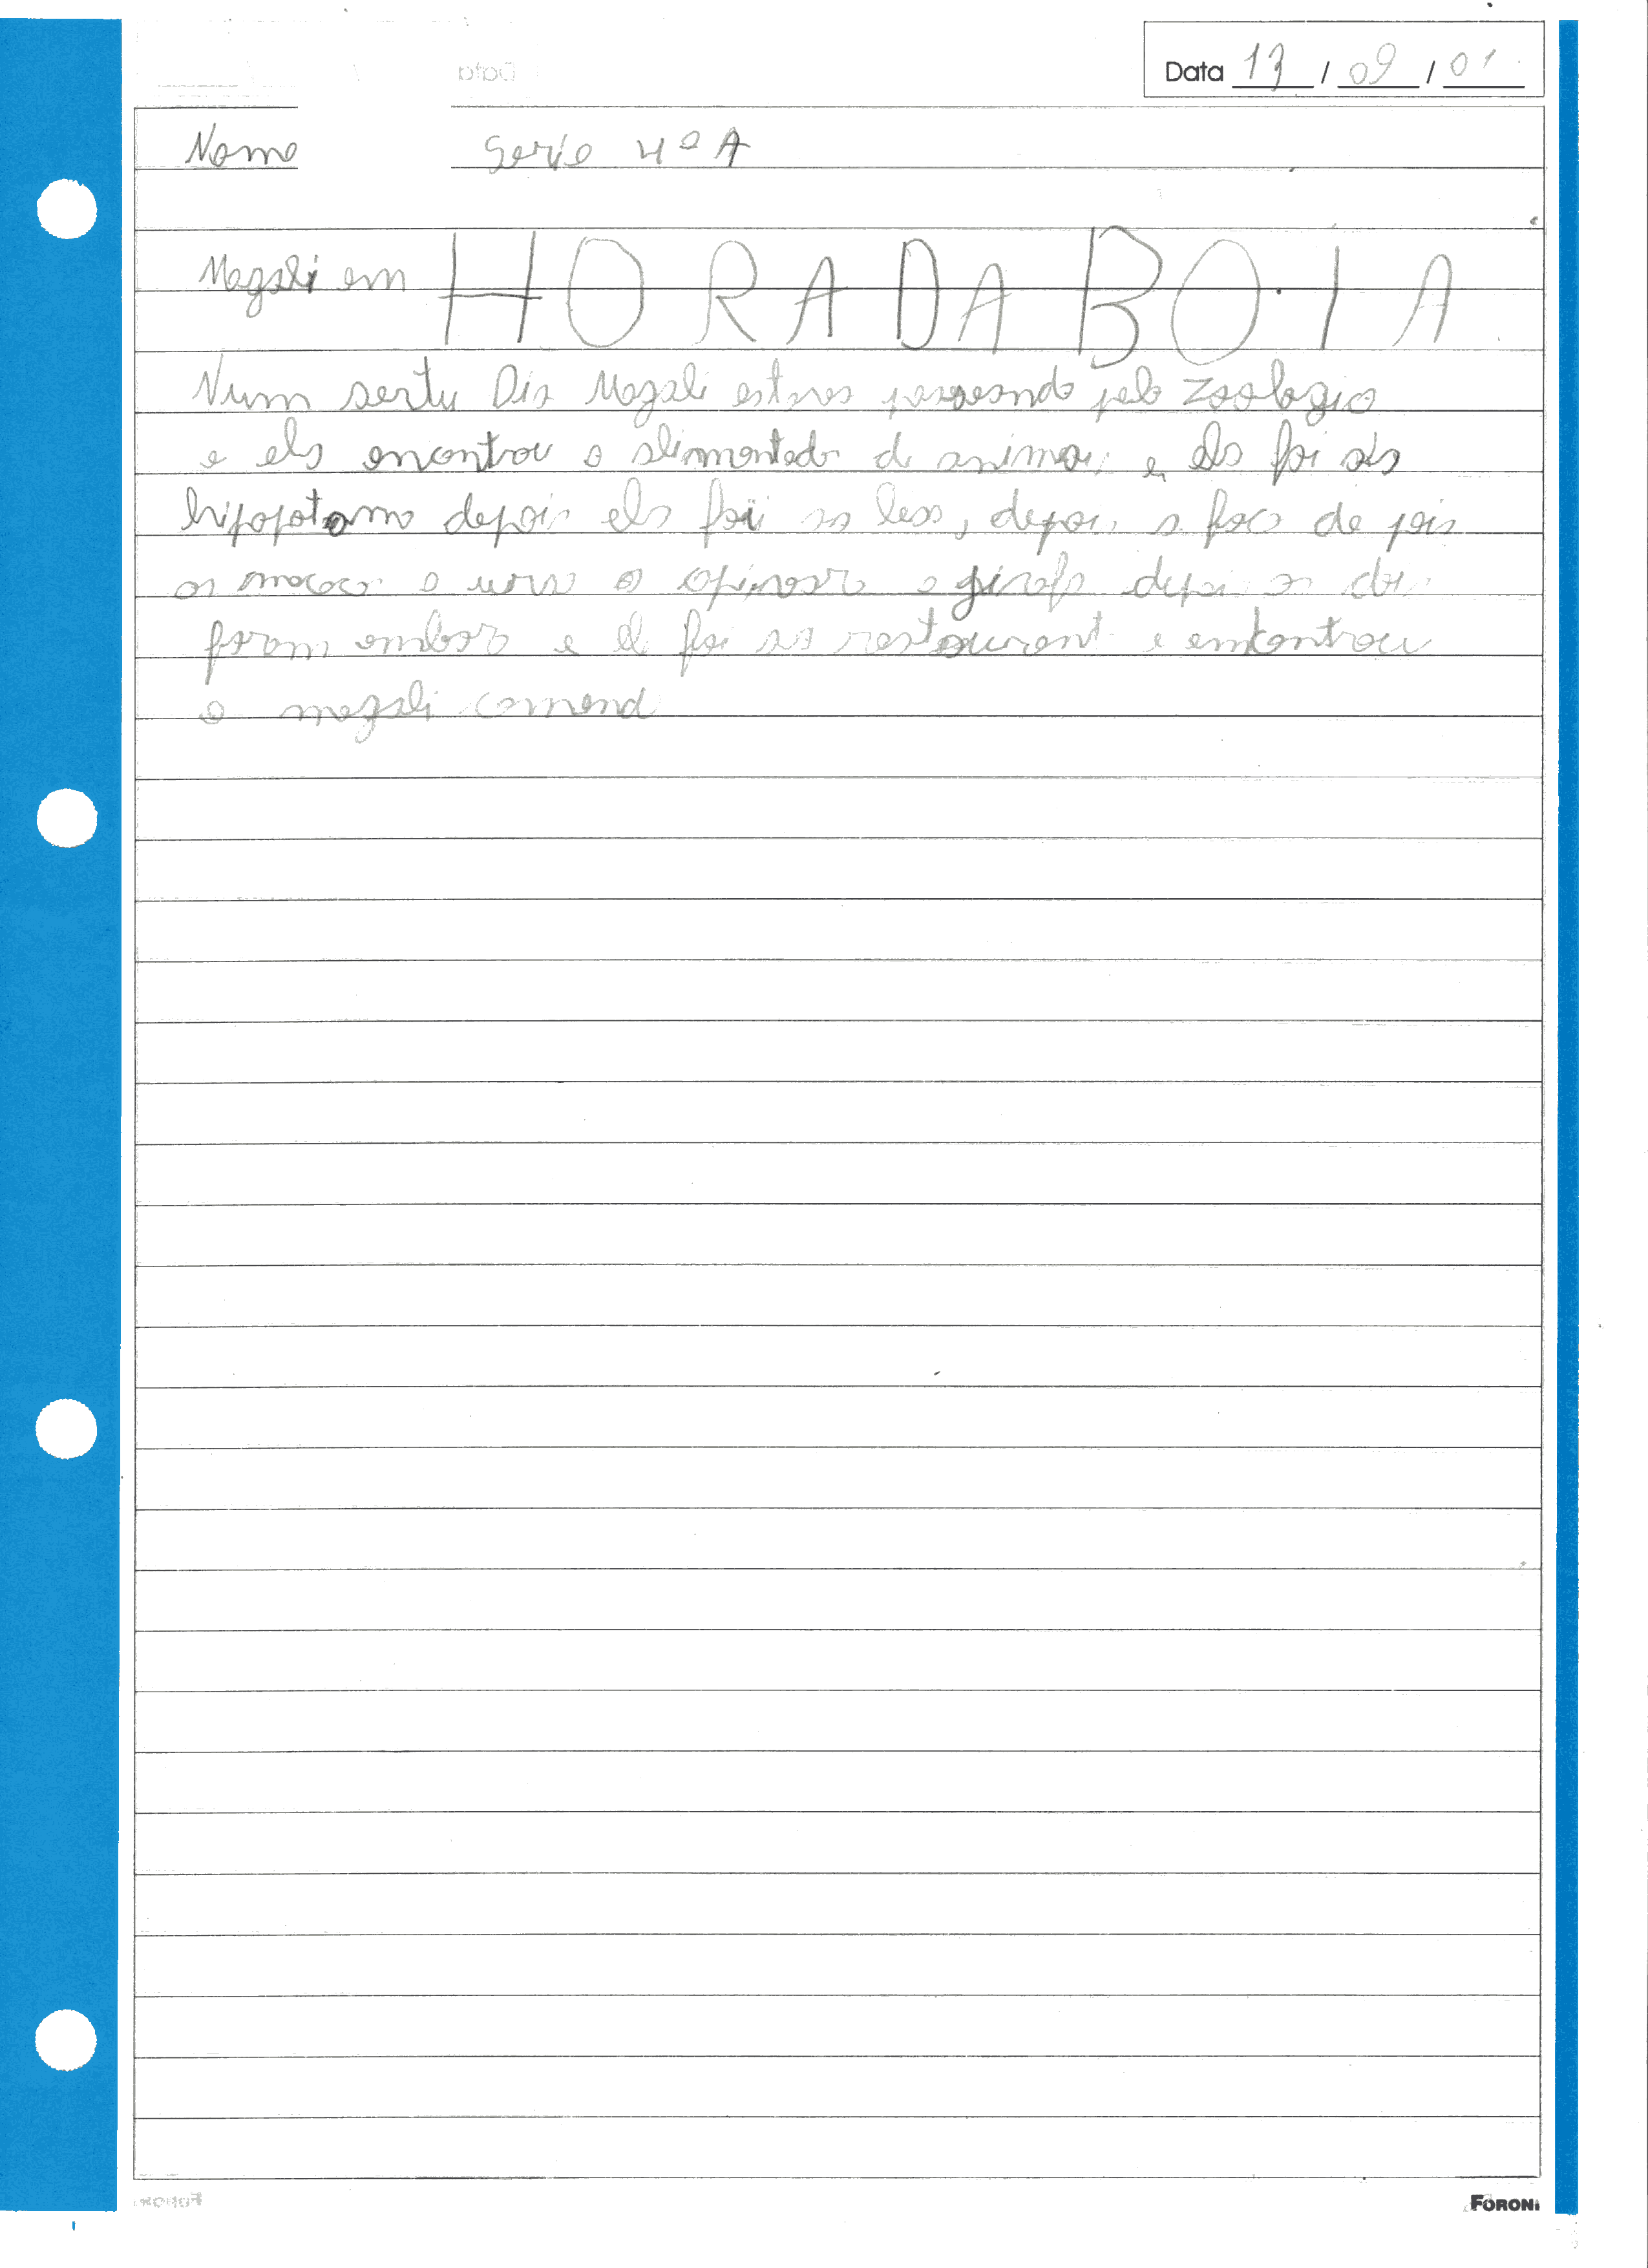 Data 13 / 09 / 01
Nome Serie 4ª A
Magali em HORA DA BOIA
Num sertu Dia Magali estava passeando pelo zoologio
e ela encontrou o alimentado de animais e ela foi ais
hipopotamo depois ela foi ao leao, depois a foca de pois
os macaco o urso o a girafa depois os dois
foram embora e ele foi ao restaurant e emcontrou
a magali comend
FORONI